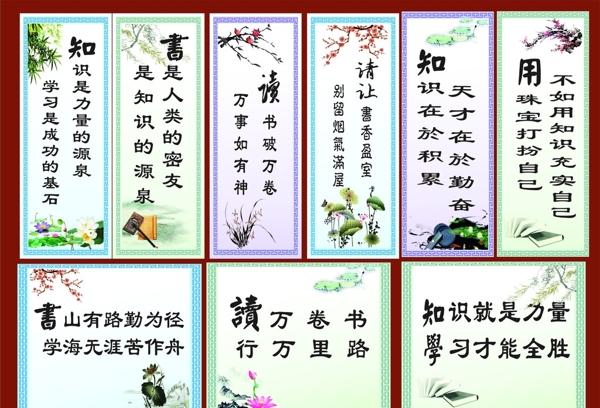 知识是力量的源泉
学习是成功的基石
書是人类的密友
是知识的源泉
讀书破万卷
万事如有神
请让書香盈室
别留烟氣滿屋
知识在於积累
天才在於勤奋
用珠宝打扮自己
不如用知识充实自己
書山有路勤为径
学海无涯苦作舟
讀万卷书
行万里路
知识就是力量
學习才能全胜